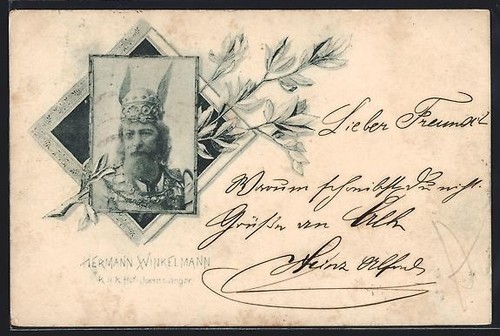 Lieber Freund!
Warum schreibst du nicht.
Grüße an
Heinz Alfred
HERMANN WINKELMANN
K. u. K. Hof-Opernsänger.